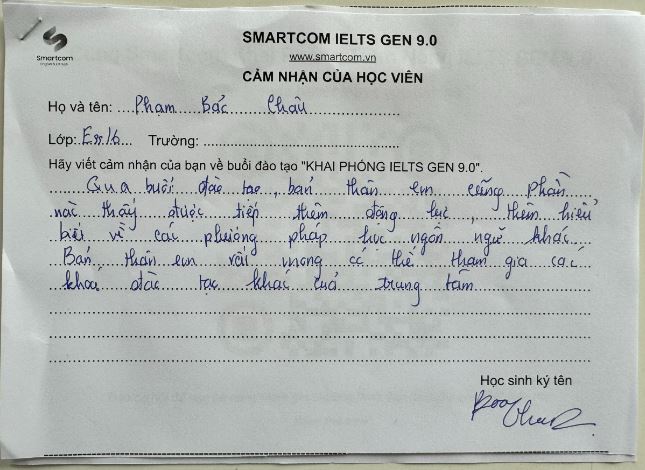 Smartcom
SMARTCOM IELTS GEN 9.0
www.smartcom.vn
CẢM NHẬN CỦA HỌC VIÊN
Họ và tên: Phạm Bảo Châu
Lớp: Trường:
Hãy viết cảm nhận của bạn về buổi đào tạo "KHAI PHÓNG IELTS GEN 9.0".
Qua buổi đào tạo, bản thân em cũng phần
nào thấy được tiếp thêm động lực, thêm hiểu
biết về các phương pháp học ngôn ngữ khác.
Bản thân em rất mong có thể tham gia các
khoá đào tạo khác của trung tâm
Học sinh ký tên